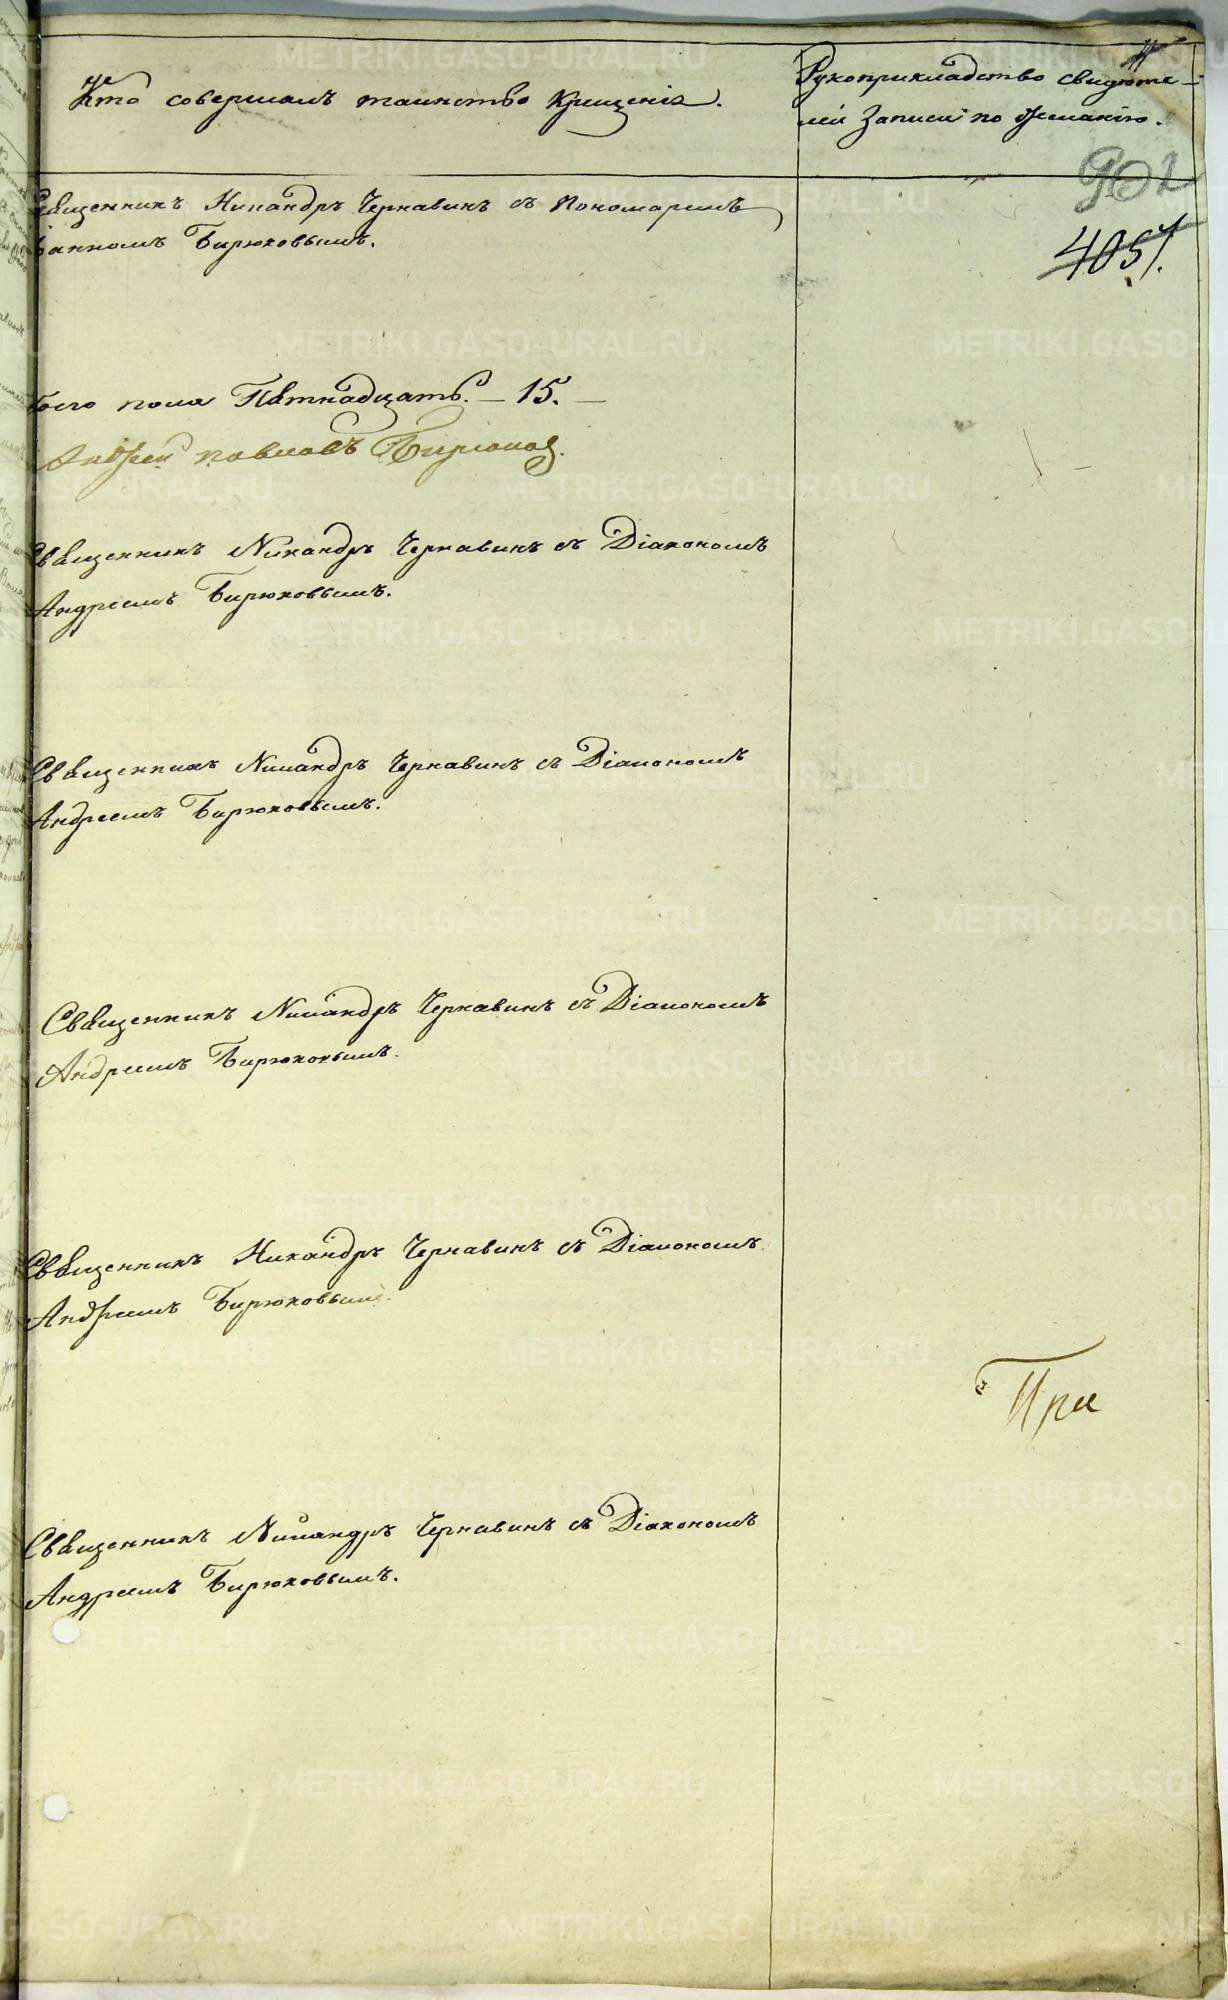 Кто совершалъ таинство Крещенія.
Рукоприкладство свидѣте-
лей записи по желанію.
902
4051.
Священникъ Никандръ Чернавинъ съ Пономаремъ
Іоанномъ Бирюковымъ.
пола Пятнадцать. — 15. —
Андрей Павловъ Бирюковъ.
Священникъ Никандръ Чернавинъ съ Діакономъ
Андреемъ Бирюковымъ.
Священникъ Никандръ Чернавинъ съ Діакономъ
Андреемъ Бирюковымъ.
Священникъ Никандръ Чернавинъ съ Діакономъ
Андреемъ Бирюковымъ.
Священникъ Никандръ Чернавинъ съ Діакономъ
Андреемъ Бирюковымъ.
При
Священникъ Никандръ Чернавинъ съ Діакономъ
Андреемъ Бирюковымъ.
METRIKI.GASO-URAL.RU